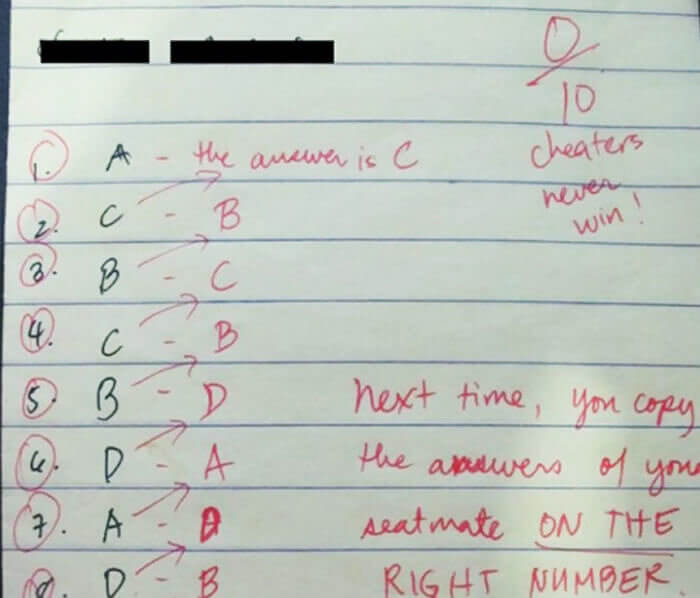 0/10
1. A - the answer is C
cheaters
never
win!
2. C - B
3. B - C
4. C - B
5. B - D
Next time, you copy
6. D - A
the answers of your
7. A - D
seatmate ON THE
8. D - B
RIGHT NUMBER.